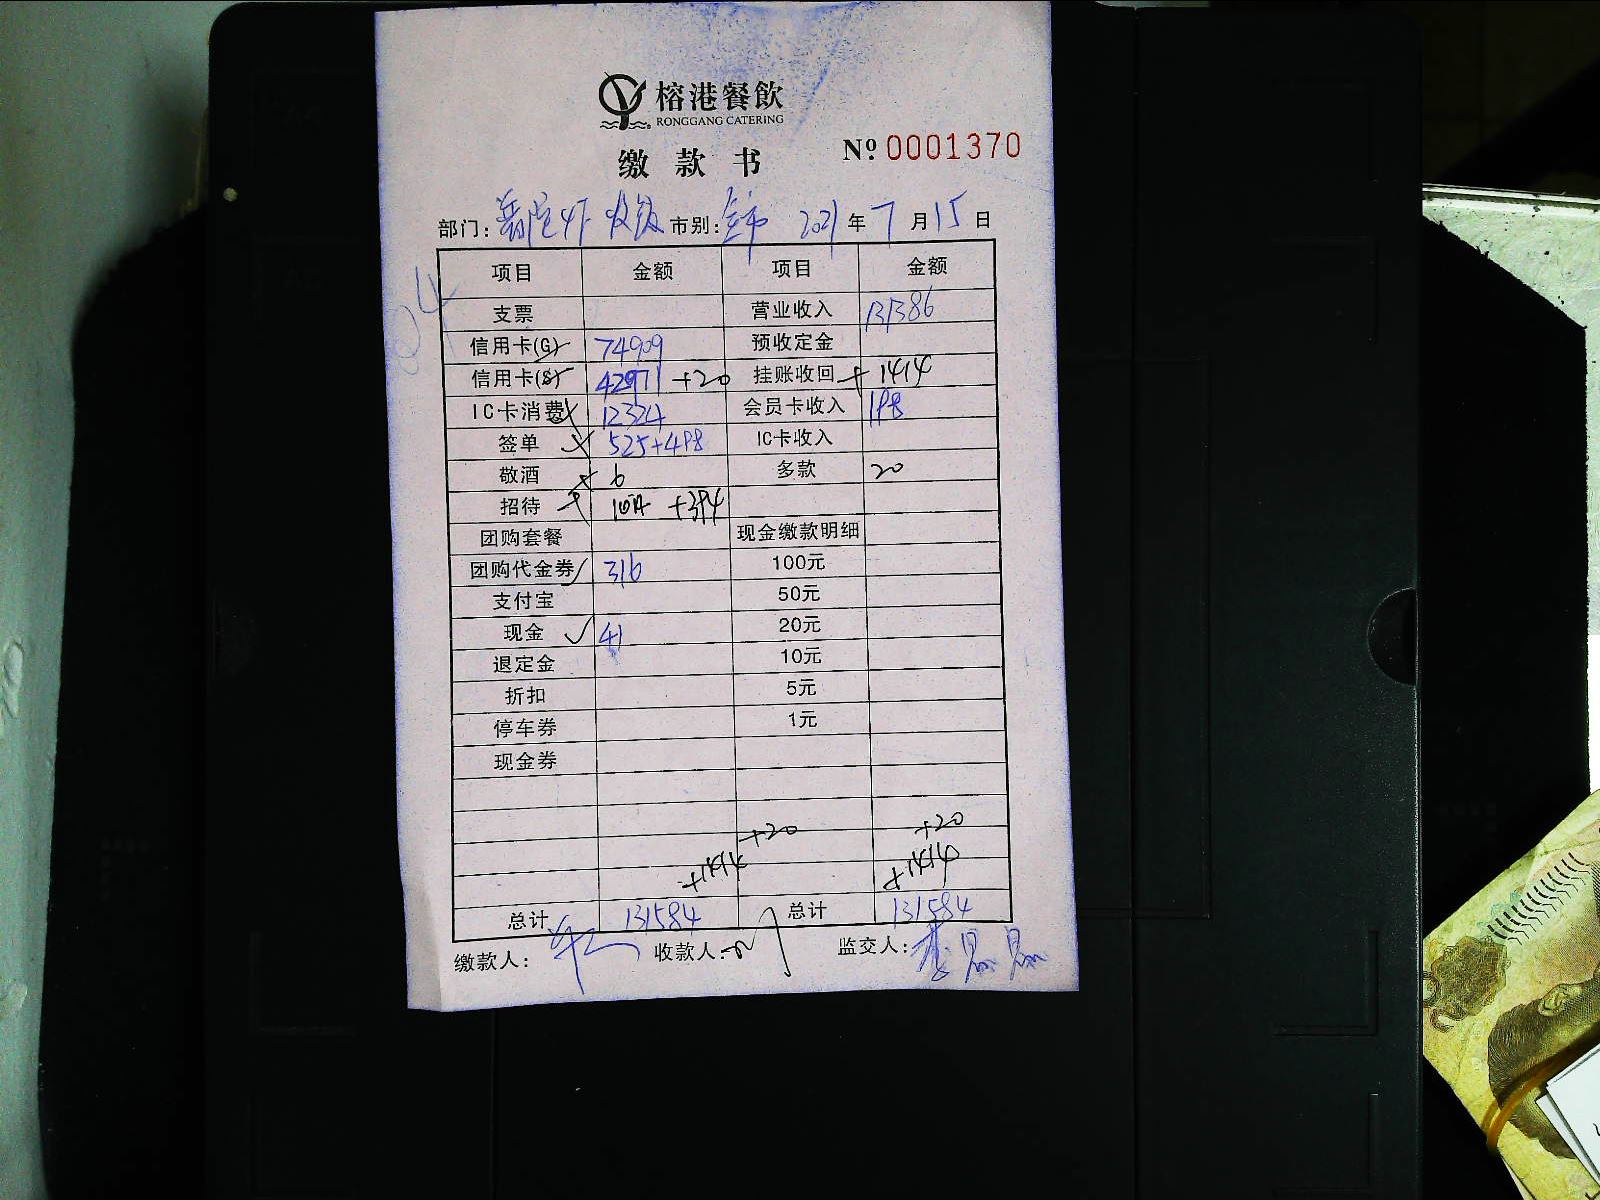 榕港餐飲
RONGGANG CATERING
缴款书 Nº 0001370
部门: 市别: 2021年7月15日
项目 金额 项目 金额
支票 营业收入 131386
信用卡(G) 74909 预收定金
信用卡(S) 42971 +20 挂账收回 +1414
IC卡消费 12324 会员卡收入 198
签单 525+498 IC卡收入
敬酒 6 多款 20
招待 +394
团购套餐 现金缴款明细
团购代金券 316 100元
支付宝 50元
现金 41 20元
退定金 10元
折扣 5元
停车券 1元
现金券
+20 +20
+1414 +1414
总计 131584 总计 131584
缴款人: 收款人: 监交人: